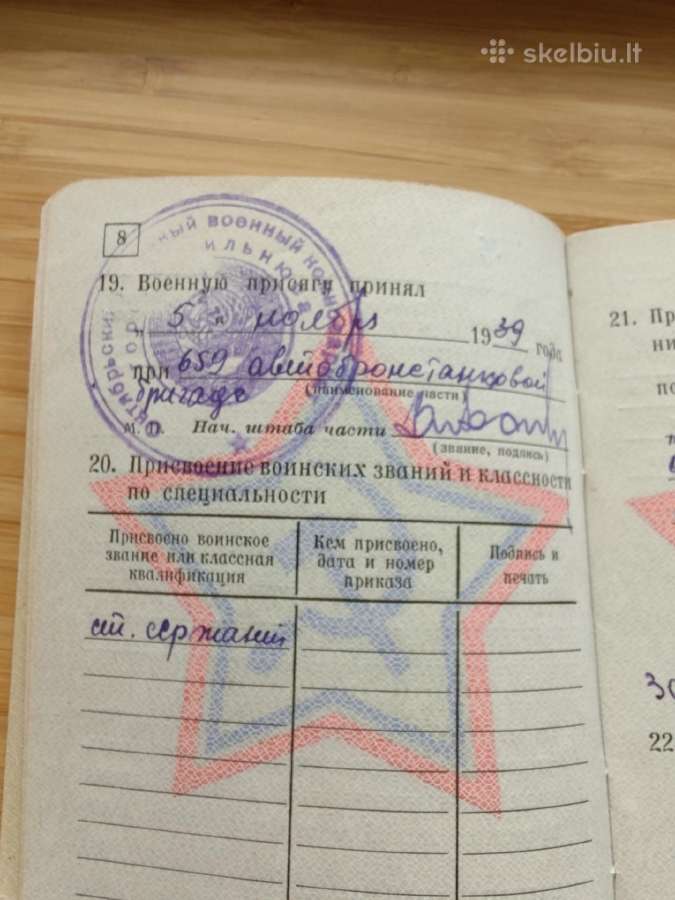 skelbiu.lt
8
ВОЕННЫЙ
ВИЛЬНЮС
19. Военную присягу принял
„ 5 " ноября 1939 года
при 659 автобронетанковой
(наименование части)
бригаде
М. П. Нач. штаба части
(звание, подпись)
20. Присвоение воинских званий и классности
по специальности
Присвоено воинское
звание или классная
квалификация
Кем присвоено,
дата и номер
приказа
Подпись и
печать
ст. сержант
21. Пр
ни
по
22